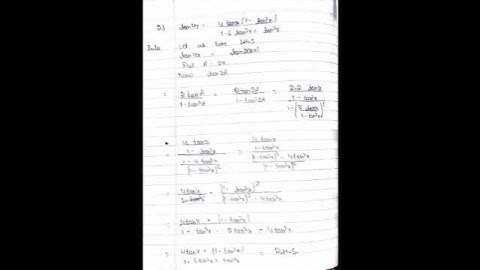 23 tan4x = 4 tanx (1 - tan²x) / 1 - 6 tan²x + tan⁴x
Let us take LHS
tan4x = tan2(2x)
Put A = 2x
Now tan2A
= 2 tanA / 1 - tan²A = 2 tan2x / 1 - tan²2x = 2.2 tanx / 1 - tan²x / 1 - (2 tanx / 1 - tan²x)²
= 4 tanx / 1 - tan²x / 1 - 4 tan²x / (1 - tan²x)² = 4 tanx / 1 - tan²x / (1 - tan²x)² - 4 tan²x / (1 - tan²x)²
= 4 tanx / 1 - tan²x × (1 - tan²x)² / (1 - tan²x)² - 4 tan²x
= 4 tanx × (1 - tan²x) / 1 + tan⁴x
= 4 tanx × (1 - tan²x) / 1 - 6 tan²x + tan⁴x = R.H.S